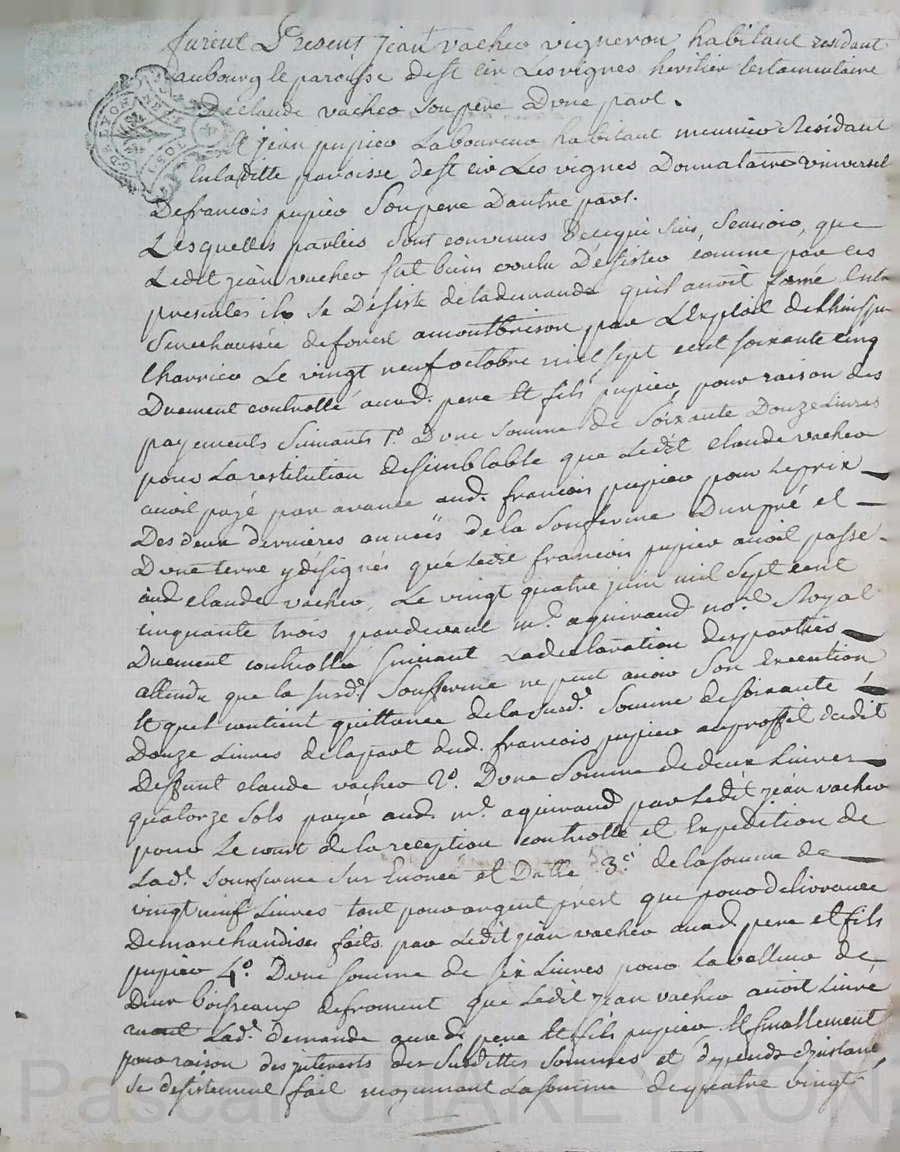 furent Present jean vacher vigneron habitant residant
aubourg le paroisse de st cir Les vignes heritier testamentaire
De Claude vacher son pere D'une part.
Et jean pupier Laboureur habitant meunier Residant
en la ditte paroisse de st cir Les vignes Donnataire universel
De francois pupier Son pere D'autre part.
Lesquelles parties sont convenus De ce qui suit, Scavoir, que
Ledit jean vacher fut bien voulu Desister comme par ces
presentes il se Desiste de la demande quil avoit formé En la
Senechaussée de forest a montbrison par L'Exploit de L'huissier
Charrier Le vingt neuf octobre mil sept cent soixante cinq
Duement controllé aud. pere Et fils pupier pour raison des
payements Suivants 1.º D'une somme de Soixante Douze Livres
pour La restitution de semblable que Ledit Claude vacher
avoit payé par avance aud. francois pupier pour Le prix
Des deux dernieres années de la Sousferme D'un pré et
D'une terre y désignés que Ledit francois pupier avoit passé
aud Claude vacher, Le vingt quatre juin mil sept cent
cinquante trois pardevant m.e aguiraud no.re Royal
Duement controllé suivant La declaration des parties
attendu que la susd.e Sousferme ne peut avoir Son Execution
Et quel contient quittance de la susd.e Somme de soixante
Douze Livres de la part dud. francois pupier au proffit dudit
Deffunt Claude vacher 2.º D'une Somme de deux Livres
quatorze Sols payée aud. m.e aguiraud par Ledit jean vacher
pour Le cout de la reception controlle et Expedition de
Lad.e sousferme sus Enoncée et Datte 3.º de la somme de
vingt neuf Livres tant pour argent prest que pour delivrance
De marchandises faits par Ledit jean vacher auxd. pere et fils
pupier 4.º D'une somme de six Livres pour La valleur de
Deux boisseaux de froment que Ledit jean vacher avoit Livré
avant Lad.e demande auxd. pere Et fils pupier, Et finallement
pour raison des interets des Susdittes Sommes et depends d'instance
Se desistement fait moyennant La somme de quatre vingt
Pascal CHAREYRON